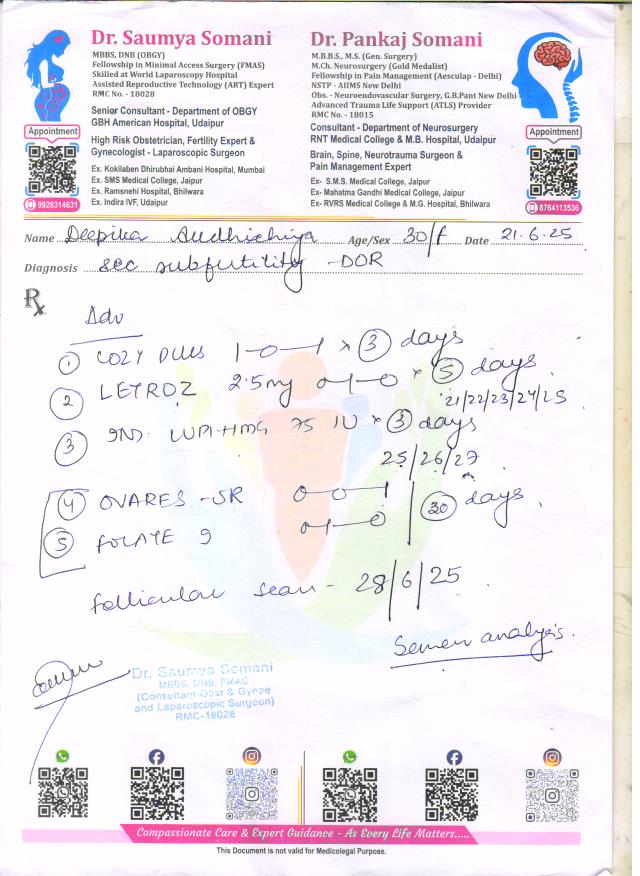 Dr. Saumya Somani
MBBS, DNB (OBGY)
Fellowship in Minimal Access Surgery (FMAS)
Skilled at World Laparoscopy Hospital
Assisted Reproductive Technology (ART) Expert
RMC No. - 18028
Senior Consultant - Department of OBGY
GBH American Hospital, Udaipur
High Risk Obstetrician, Fertility Expert &
Gynecologist - Laparoscopic Surgeon
Ex. Kokilaben Dhirubhai Ambani Hospital, Mumbai
Ex. SMS Medical College, Jaipur
Ex. Ramsnehi Hospital, Bhilwara
Ex. Indira IVF, Udaipur
Appointment
9928314631
Dr. Pankaj Somani
M.B.B.S., M.S. (Gen. Surgery)
M.Ch. Neurosurgery (Gold Medalist)
Fellowship in Pain Management (Aesculap - Delhi)
NSTP - AIIMS New Delhi
Obs. - Neuroendovascular Surgery, G.B.Pant New Delhi
Advanced Trauma Life Support (ATLS) Provider
RMC No. - 18015
Consultant - Department of Neurosurgery
RNT Medical College & M.B. Hospital, Udaipur
Brain, Spine, Neurotrauma Surgeon &
Pain Management Expert
Ex- S.M.S. Medical College, Jaipur
Ex- Mahatma Gandhi Medical College, Jaipur
Ex- RVRS Medical College & M.G. Hospital, Bhilwara
Appointment
8764113536
Name Deepika Age/Sex 30/f Date 21.6.25
Diagnosis sec subfertility - DOR
Rx
Adv
① COZY PLUS 1-0-1 x ③ days
② LETROZ 2.5mg 0-1-0 x ⑤ days
21/22/23/24/25
③ INJ. LUPI-HMG 75 IU x ③ days
25/26/27
④ OVARES - SR 0-0-1
⑤ FOLATE 9 0-1-0 | ㉚ days
follicular scan - 28/6/25
Semen analysis.
Dr. Saumya Somani
MBBS, DNB, FMAS
(Consultant-Obst & Gynae
and Laparoscopic Surgeon)
RMC-18028
Compassionate Care & Expert Guidance - As Every Life Matters.....
This Document is not valid for Medicolegal Purpose.